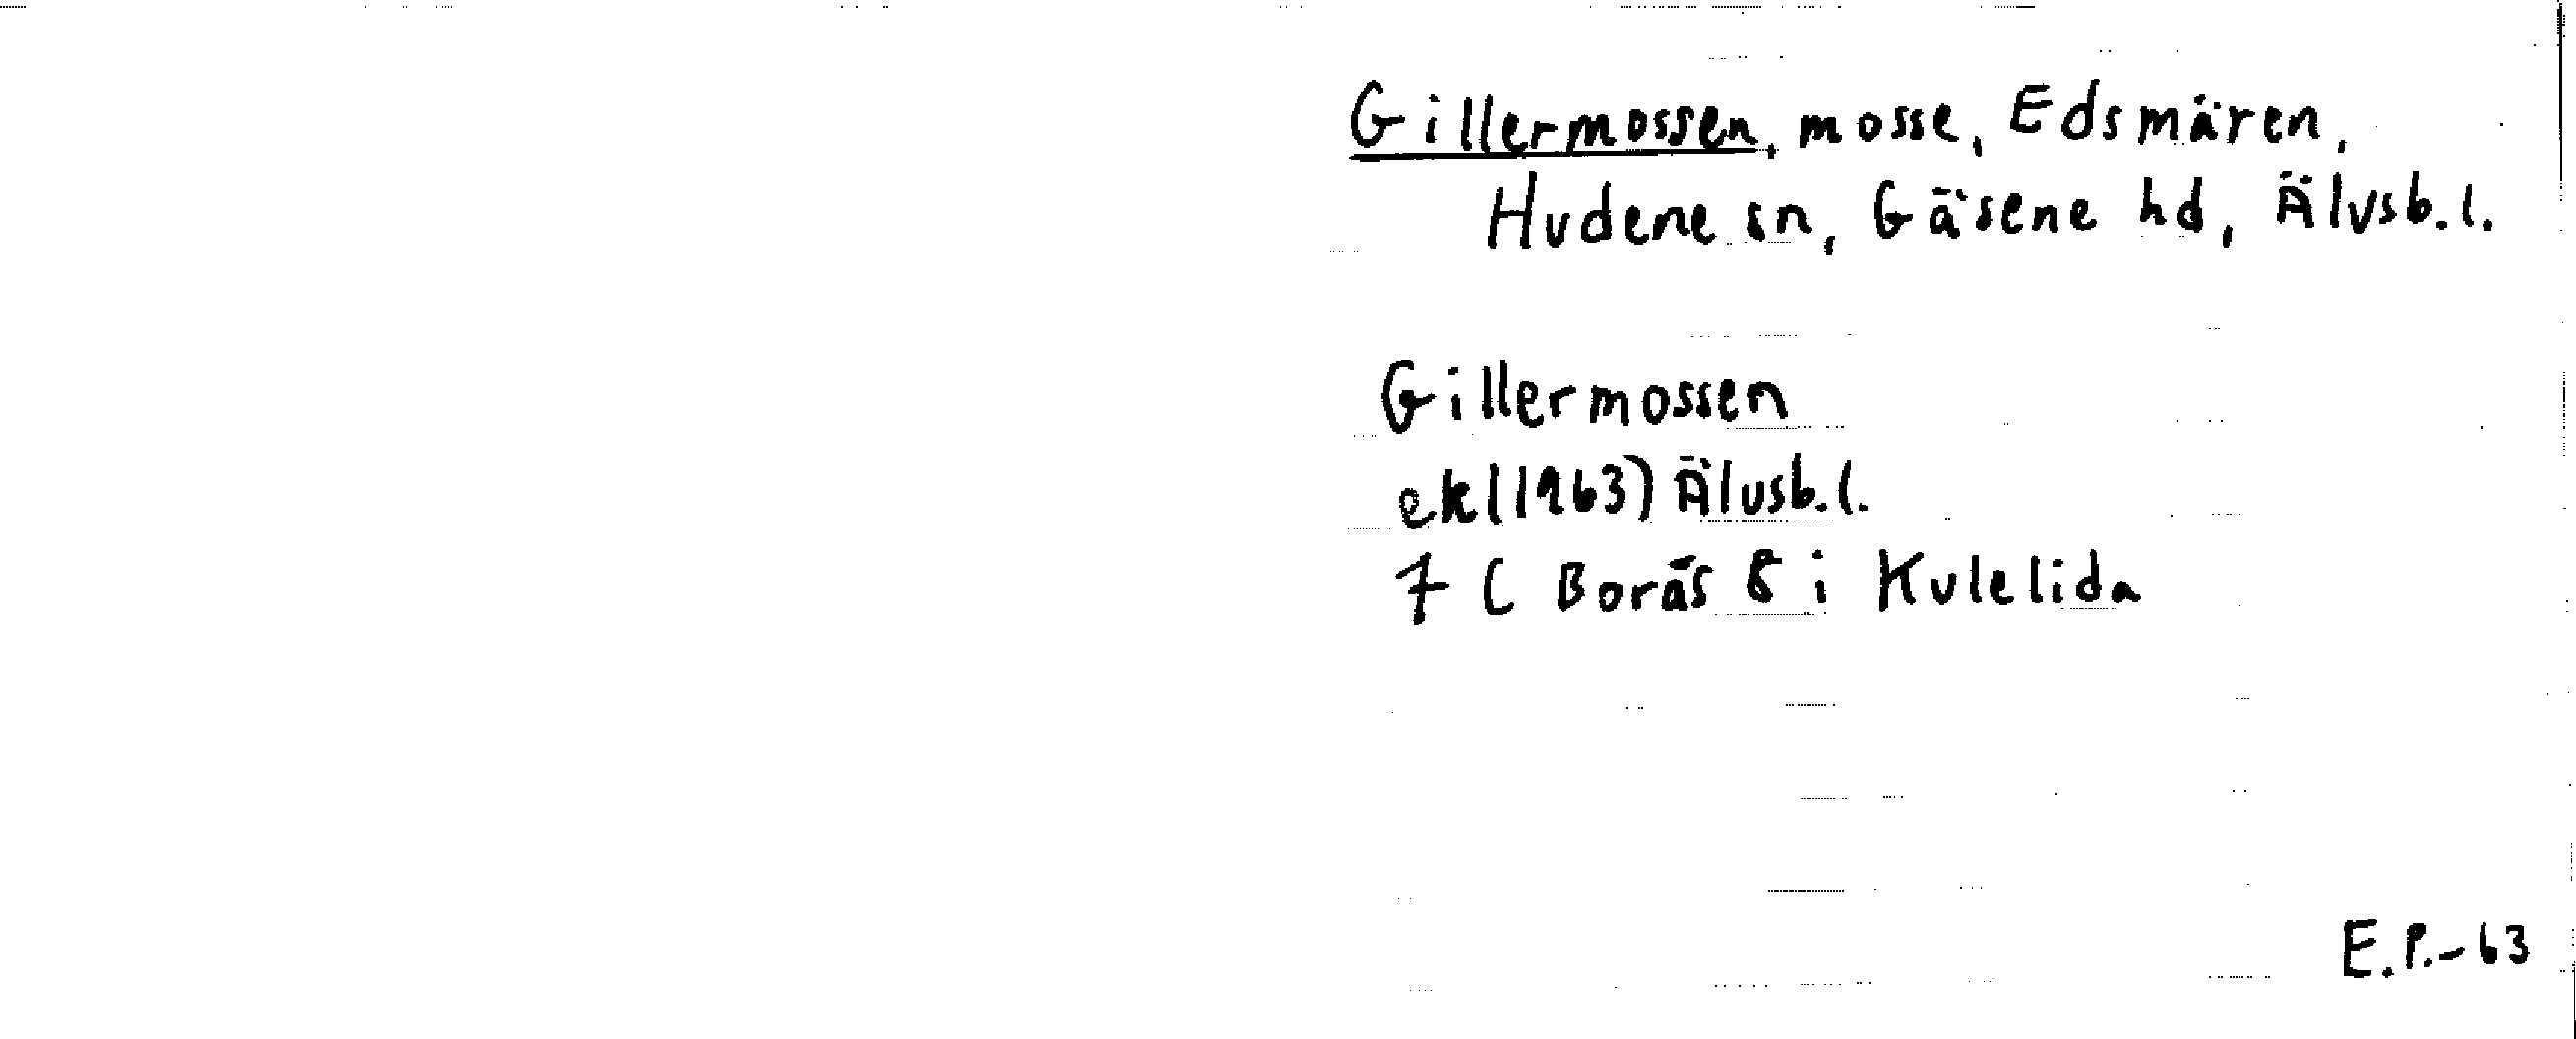 Gillermossen, mosse, Edsmären,
Hudene sn, Gäsene hd, Älvsb.l.
Gillermossen
ek(1963) Älvsb.l.
7 C Borås 8 i Kulelida
E.P.-63